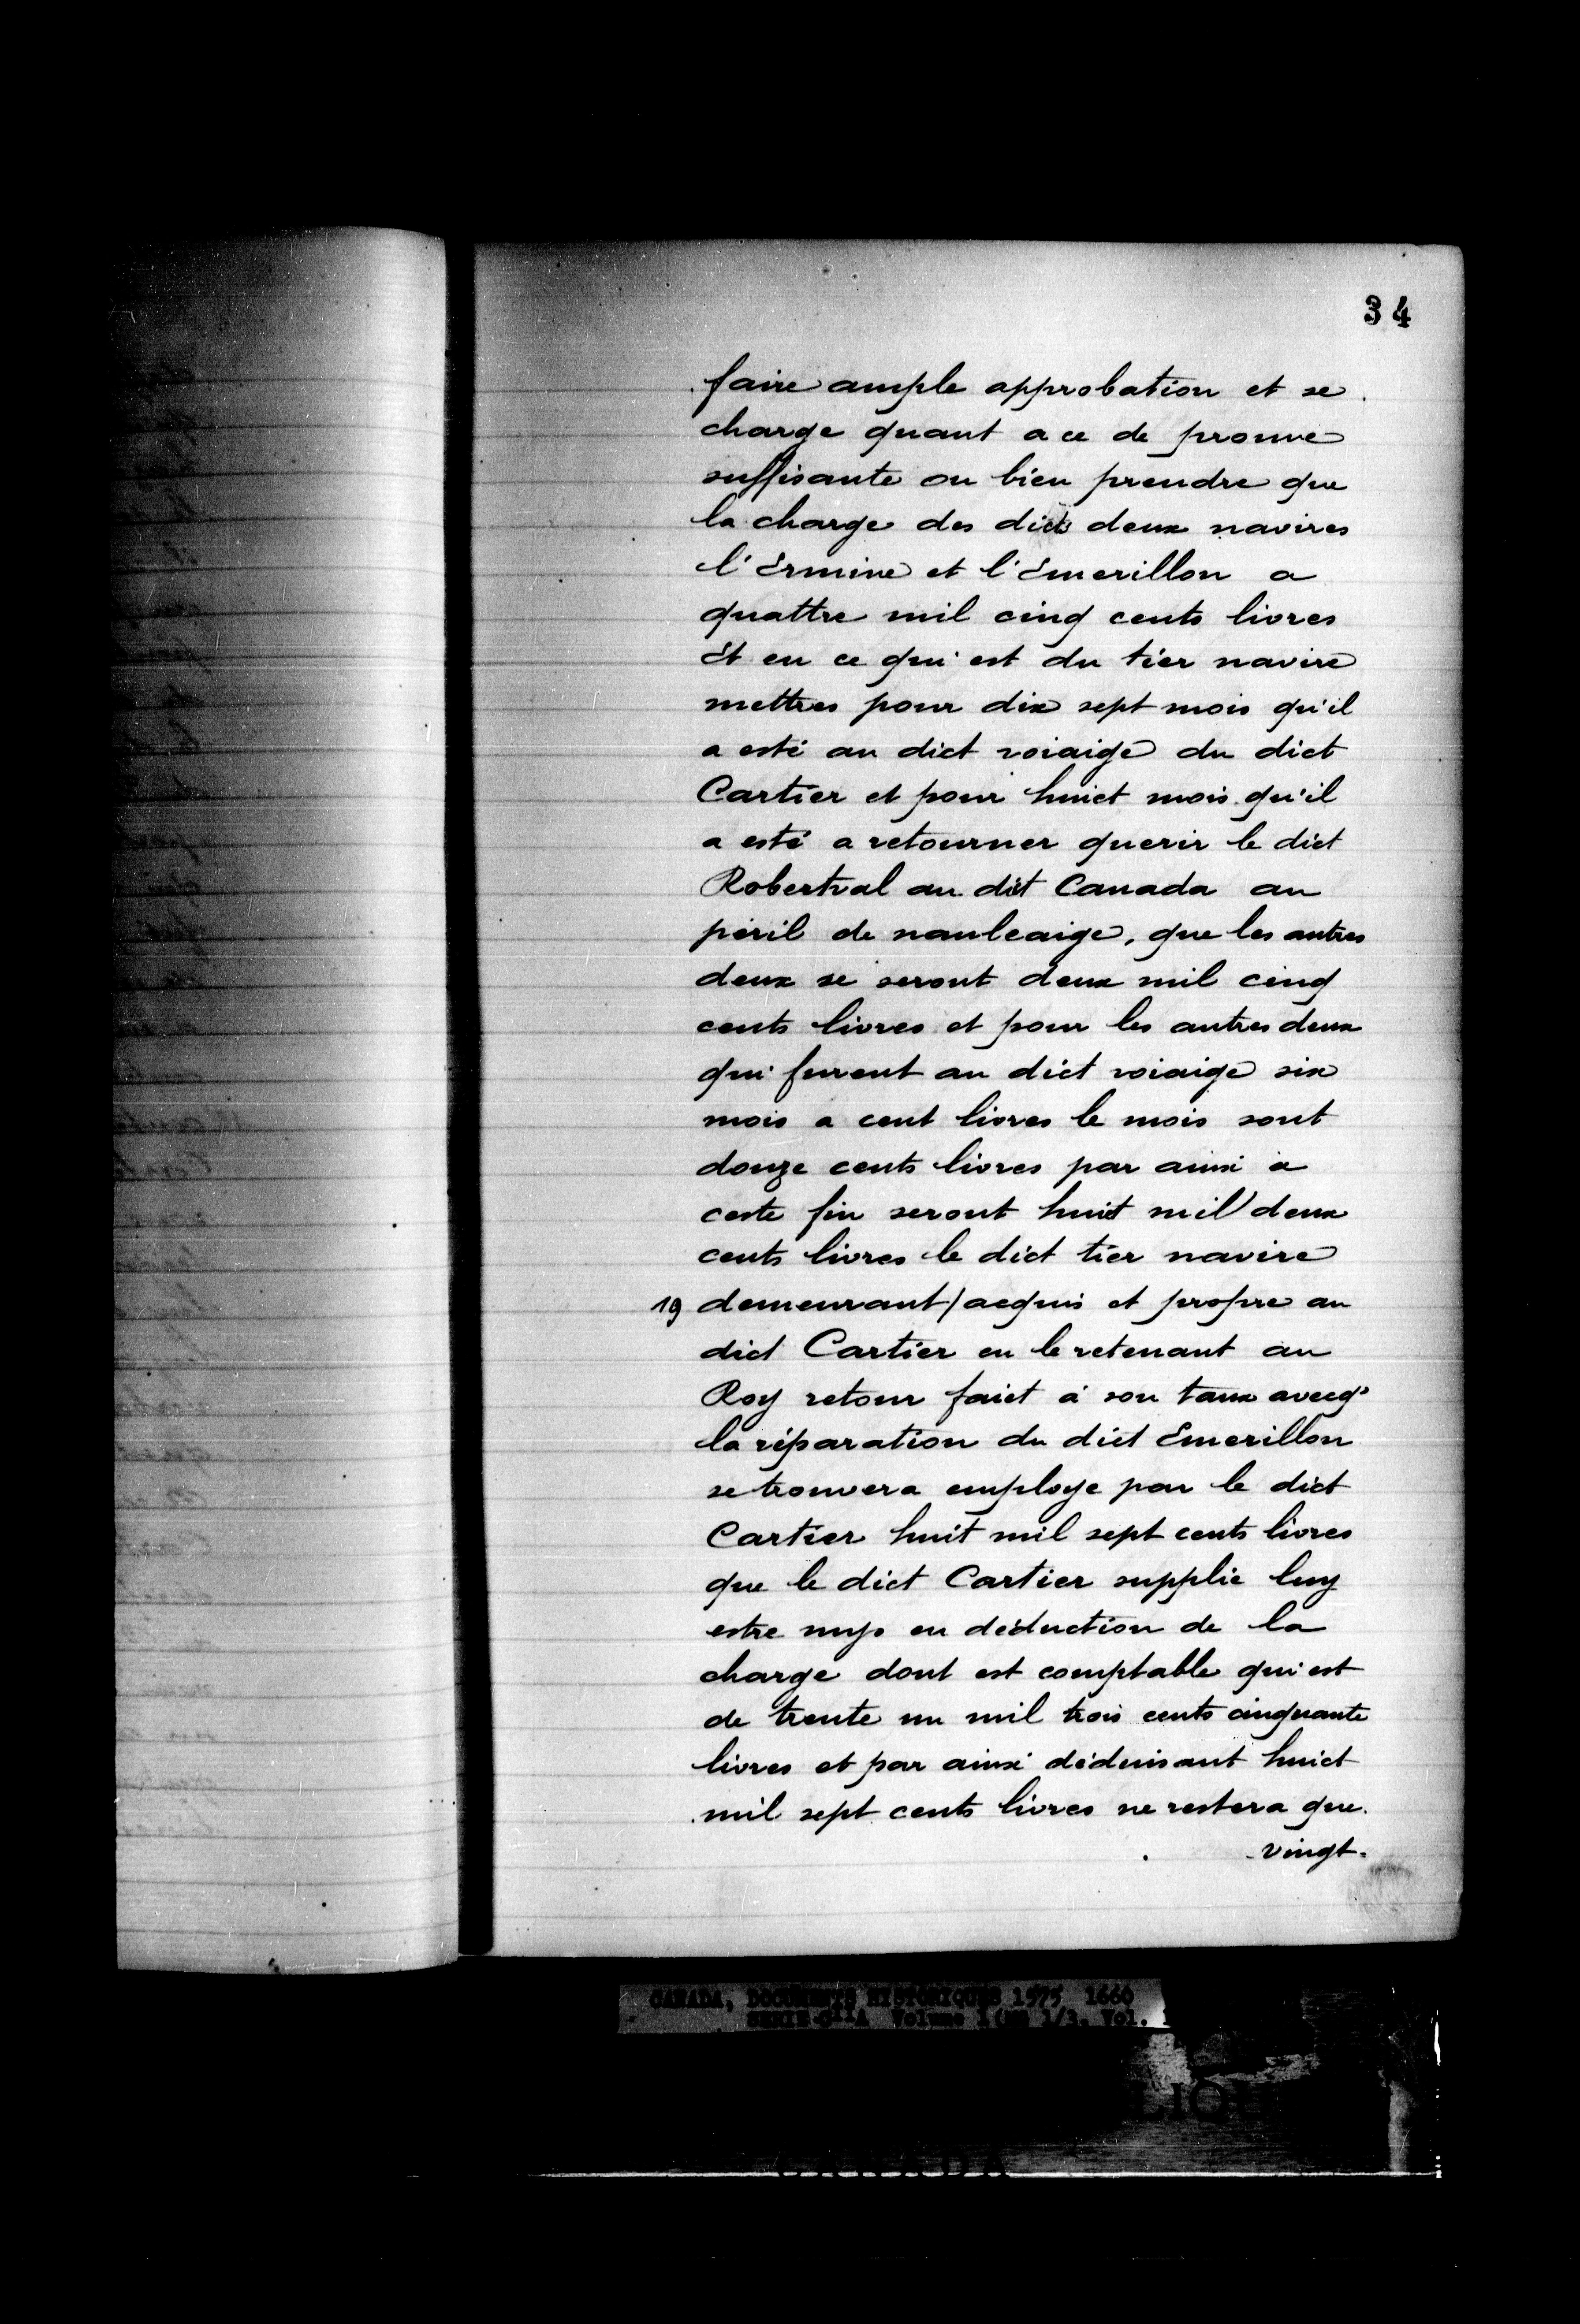 34
faire ample approbation et se
charge quant a ce de prouve
suffisante ou bien prendre que
la charge des dicts deux navires
l'Ermine et l'Emerillon a
quattre mil cinq cents livres
Et en ce qui est du tier navire
mettres pour dix sept mois qu'il
a esté au dict voiaige du dict
Cartier et pour huict mois qu'il
a esté a retourner querir le dict
Robertval au dit Canada au
péril de nauleaige, que les autres
deux se seront deux mil cinq
cents livres et pour les autres deux
qui furent au dict voiaige six
mois a cent livres le mois sont
douze cents livres par ainsi a
ceste fin seront huit mil deux
cents livres le dict tier navire
19 demeurant/acquis et propre au
dict Cartier en le retenant au
Roy retour faict à son taux avecq'
la réparation du dict Emerillon
se trouvera employe par le dict
Cartier huit mil sept cents livres
que le dict Cartier supplie luy
estre mys en déduction de la
charge dont est comptable qui est
de trente un mil trois cents cinquante
livres et par ainsi déduisant huict
mil sept cents livres ne restera que
vingt.
CANADA, DOCUMENTS HISTORIQUES 1575 1660
SERIE C11A Volume 1 1/3. Vol.